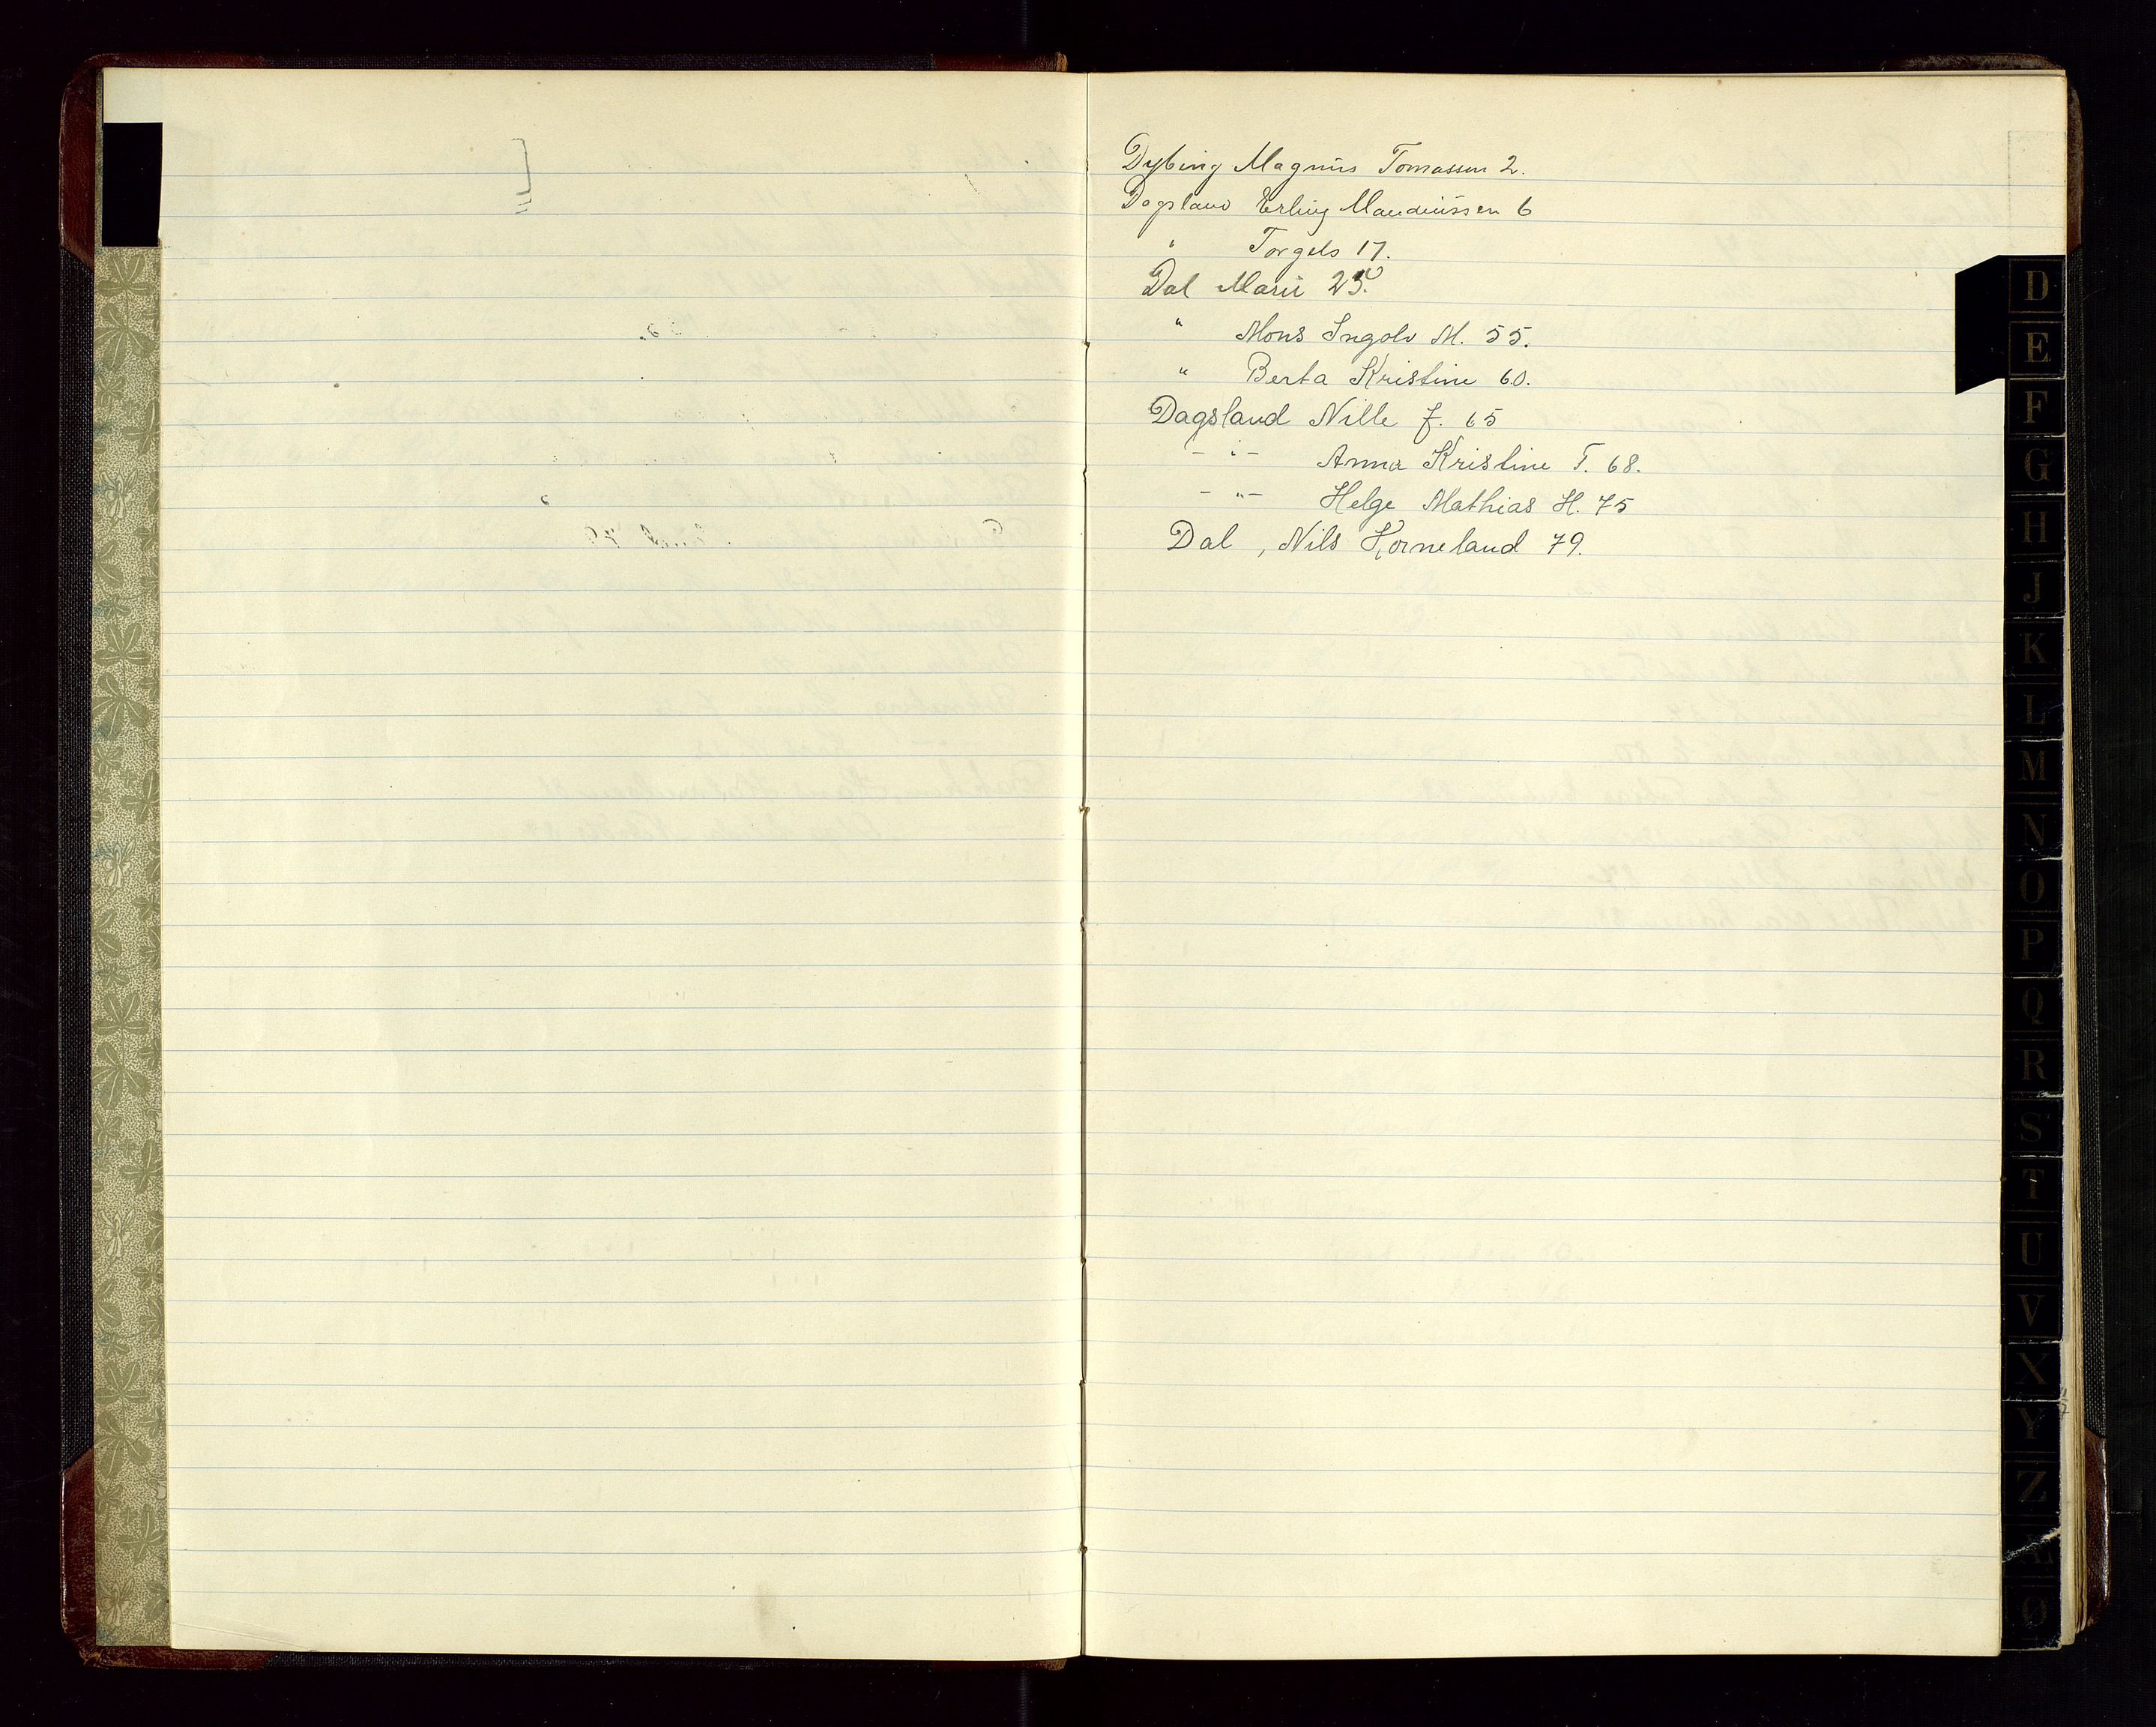 Dybing Magnus Tomassen 2.
Dagsland Erling Maudeussen 6
" Torgels 17.
Dal Marie
" Mons Ingolv M. 55.
" Berta Kristine 60.
Dagsland Nille J. 65
- " - Anna Kristine T. 68.
- " - Helge Mathias H. 75
Dal , Nils Korneland 79.
D
E
F
G
H
J
K
L
M
N
O
P
Q
R
S
T
U
V
X
Y
Z
Æ
Ø